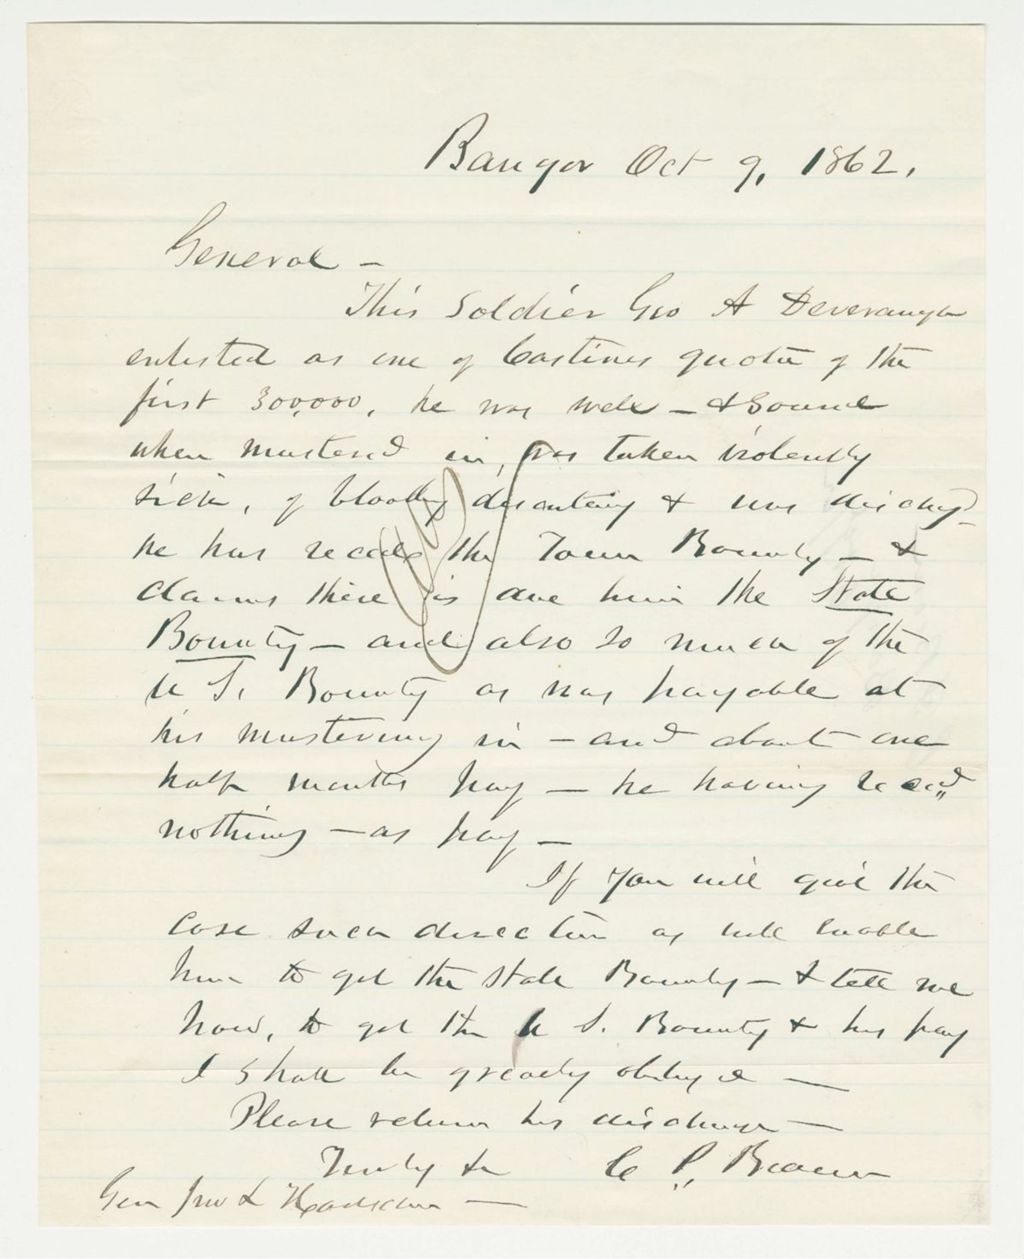 Bangor Oct 9, 1862.
General -
This Soldier Geo A Deveraugh
enlisted as one of Castines quota of the
first 300,000, he was well - & Sound
when mustered in, was taken violently
sick, of bloody & was dischgd
he has recd the Town Bounty - &
claims there is due him the State
Bounty - and also so much of the
U S. Bounty as was payable at
his mustering in - and about one
half months pay - he having recd
nothing - as pay -
If you will give the
case such direction as will enable
him to get the State Bounty - & tell me
how, to get the U S. Bounty & his pay
I shall be greatly obliged -
Please return his discharge -
Truly &c C. P. Brown
Gen Jno L Hodsdon -